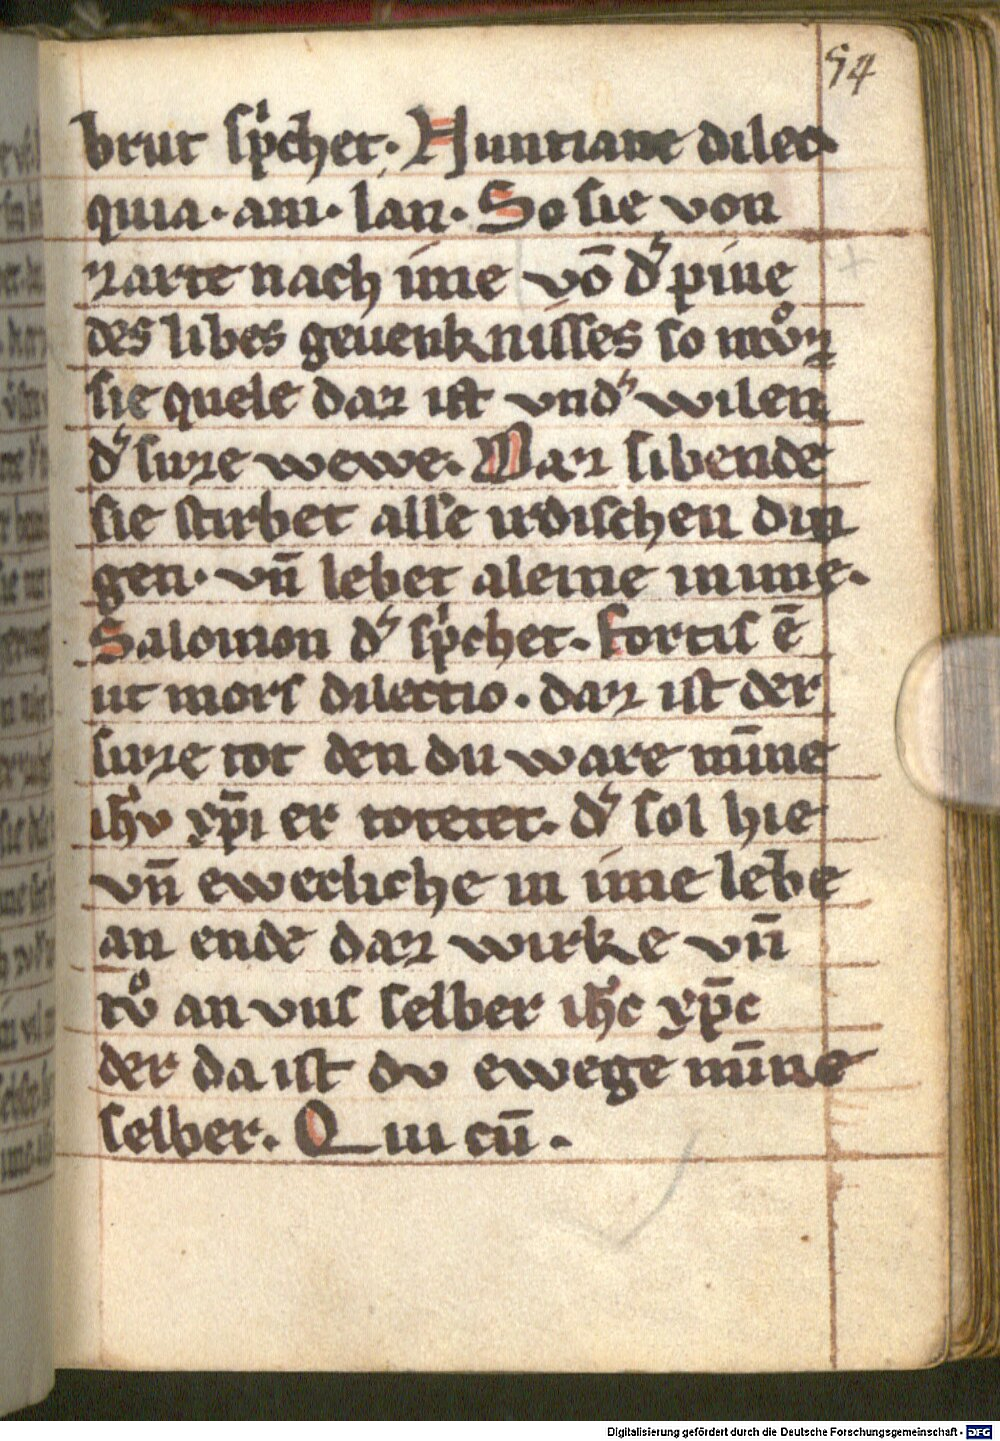 54
brut sp̾chet. Nuntiate dilec
quia . am . lan . So sie von
zarte nach ime võ d̾ pine
des libes geuenknisses so muͦz
sie quele daz ist vnd̾ wilen
d̾ suze wewe. Daz sibende
sie stirbet alle irdischen din
gen . vñ lebet aleine in ime .
Salomon d̾ sp̾chet . Fortis ē
ut mors dilectio . daz ist der
suze tot den du ware mīne
ih̾u xp̄i er totetet . d̾ sol hie
vñ ewecliche in ime leb̄e
an ende daz wirke vñ
tvͦ an vns selber ih̾c xp̄c
der da ist dv ewege mīne
selber . Qui cū .
Digitalisierung gefördert durch die Deutsche Forschungsgemeinschaft - DFG